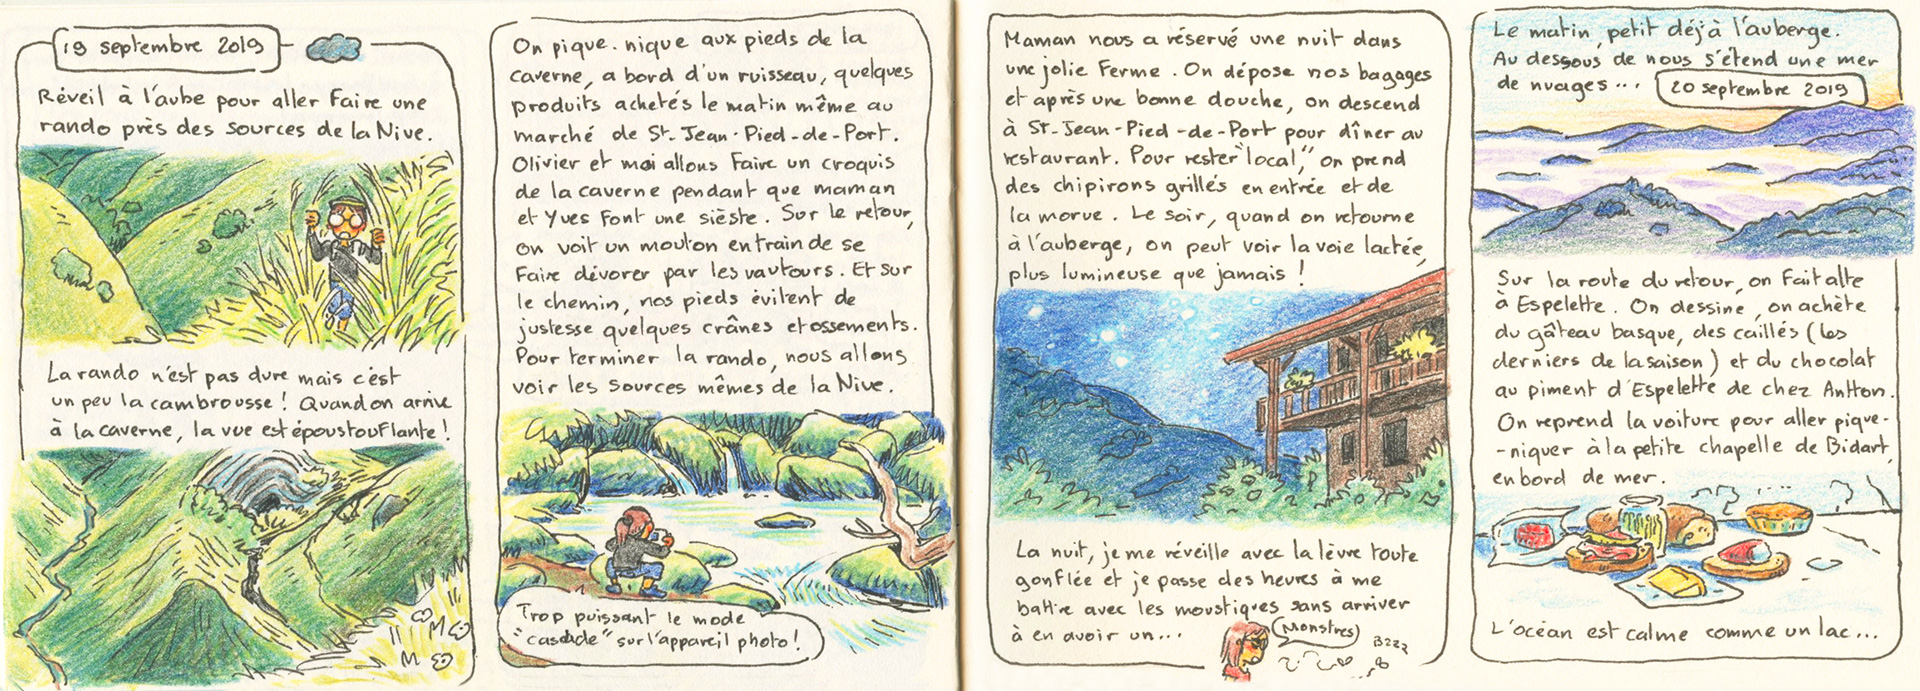 19 septembre 2019
Réveil à l'aube pour aller faire une
rando près des sources de la Nive.
La rando n'est pas dure mais c'est
un peu la cambrousse ! Quand on arrive
à la caverne, la vue est époustouflante !
M
M
On pique-nique aux pieds de la
caverne, a bord d'un ruisseau, quelques
produits achetés le matin même au
marché de St-Jean-Pied-de-Port.
Olivier et moi allons faire un croquis
de la caverne pendant que maman
et Yves font une sièste. Sur le retour,
on voit un mouton en train de se
faire dévorer par les vautours. Et sur
le chemin, nos pieds évitent de
justesse quelques crânes et ossements.
Pour terminer la rando, nous allons
voir les sources mêmes de la Nive.
Trop puissant le mode
"cascade" sur l'appareil photo !
Maman nous a réservé une nuit dans
une jolie ferme. On dépose nos bagages
et après une bonne douche, on descend
à St-Jean-Pied-de-Port pour dîner au
restaurant. Pour rester "local," on prend
des chipirons grillés en entrée et de
la morue. Le soir, quand on retourne
à l'auberge, on peut voir la voie lactée,
plus lumineuse que jamais !
La nuit, je me réveille avec la lèvre toute
gonflée et je passe des heures à me
battre avec les moustiques sans arriver
à en avoir un...
(Monstres)
Bzzz
Le matin, petit déj à l'auberge.
Au dessous de nous s'étend une mer
de nuages...
20 septembre 2019
Sur la route du retour, on fait alte
à Espelette. On dessine, on achète
du gâteau basque, des caillés (les
derniers de la saison) et du chocolat
au piment d'Espelette de chez Antton.
On reprend la voiture pour aller pique-
-niquer à la petite chapelle de Bidart,
en bord de mer.
L'océan est calme comme un lac...